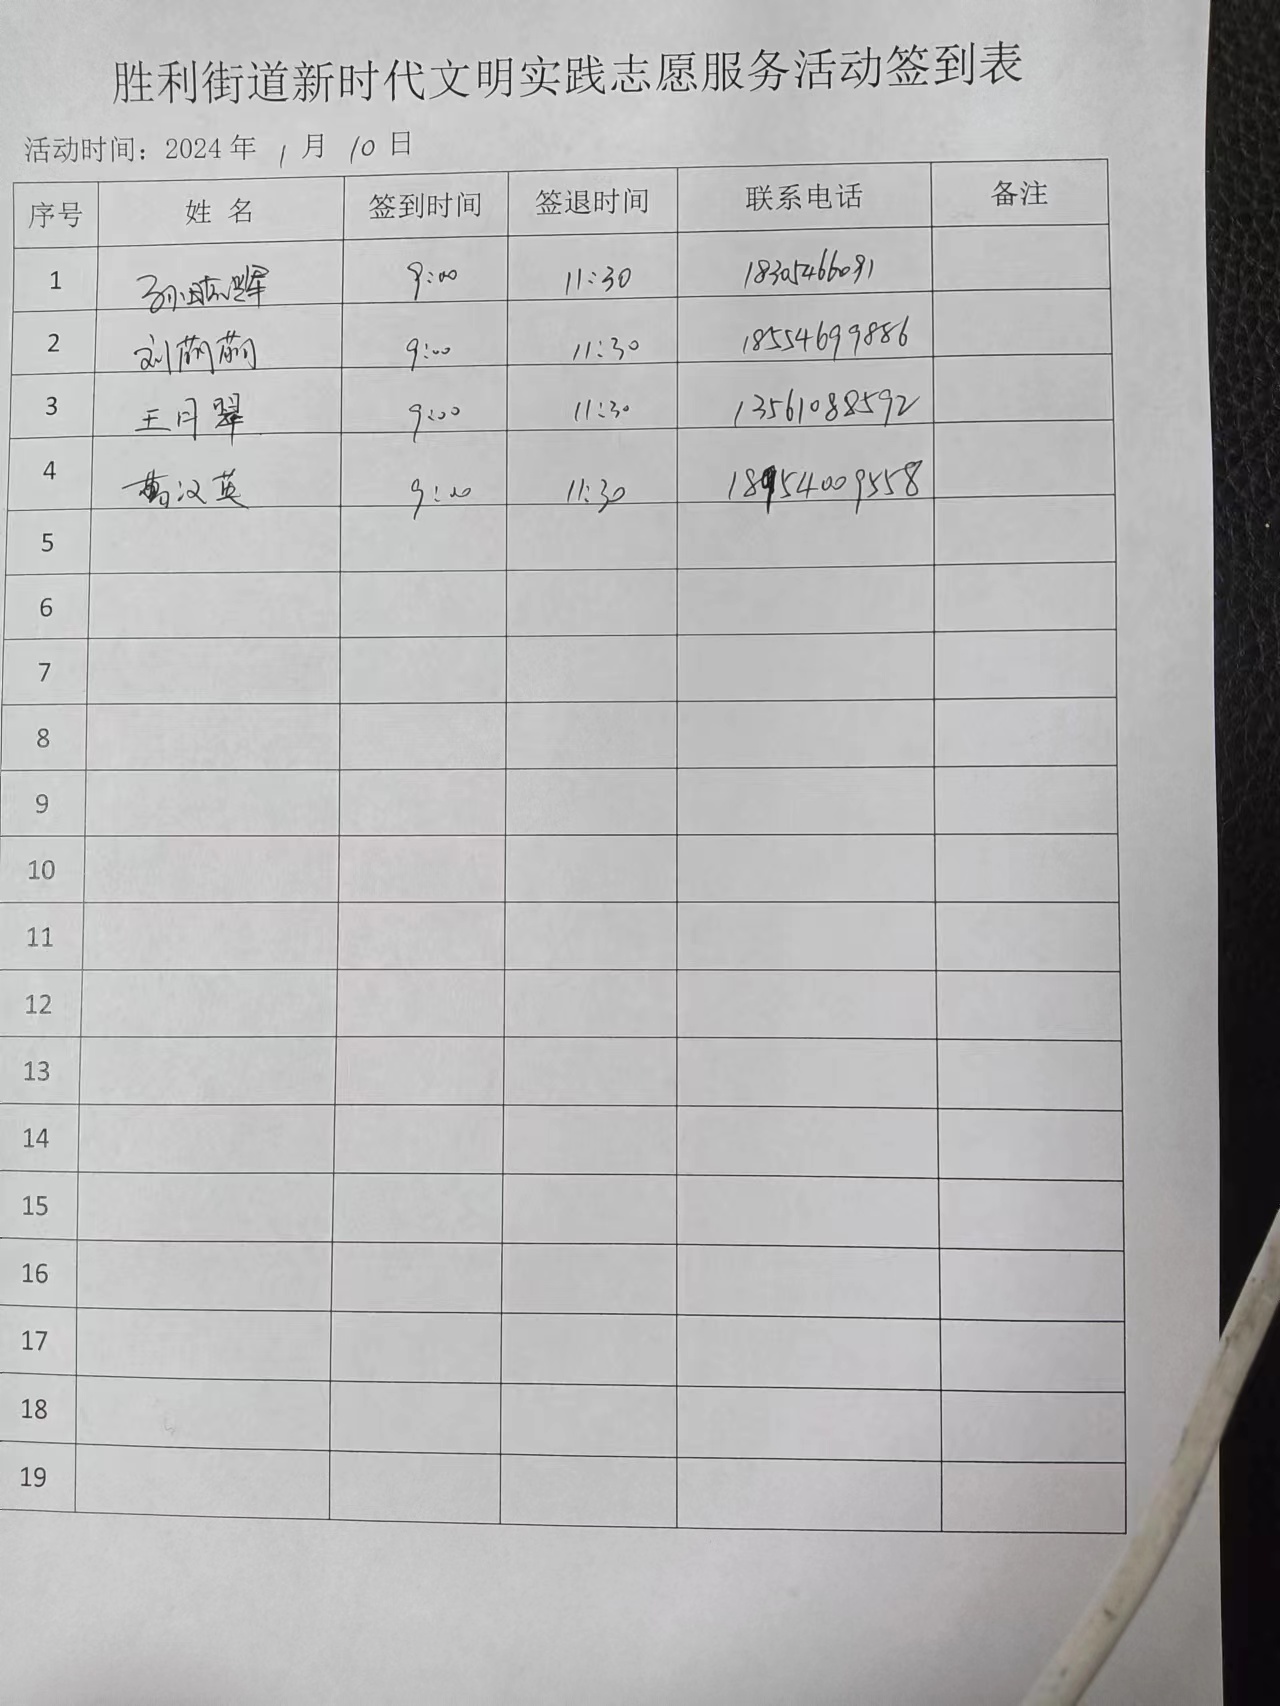 胜利街道新时代文明实践志愿服务活动签到表
活动时间：2024 年 1 月 10 日
序号 姓 名 签到时间 签退时间 联系电话 备注
1 孙晓辉 9:00 11:30 18305466091
2 刘萌萌 9:00 11:30 18554699886
3 王月翠 9:00 11:30 13561088592
4 汉英 9:00 11:30 18954009558
5
6
7
8
9
10
11
12
13
14
15
16
17
18
19